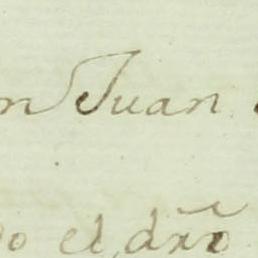 n Juan
do el dro